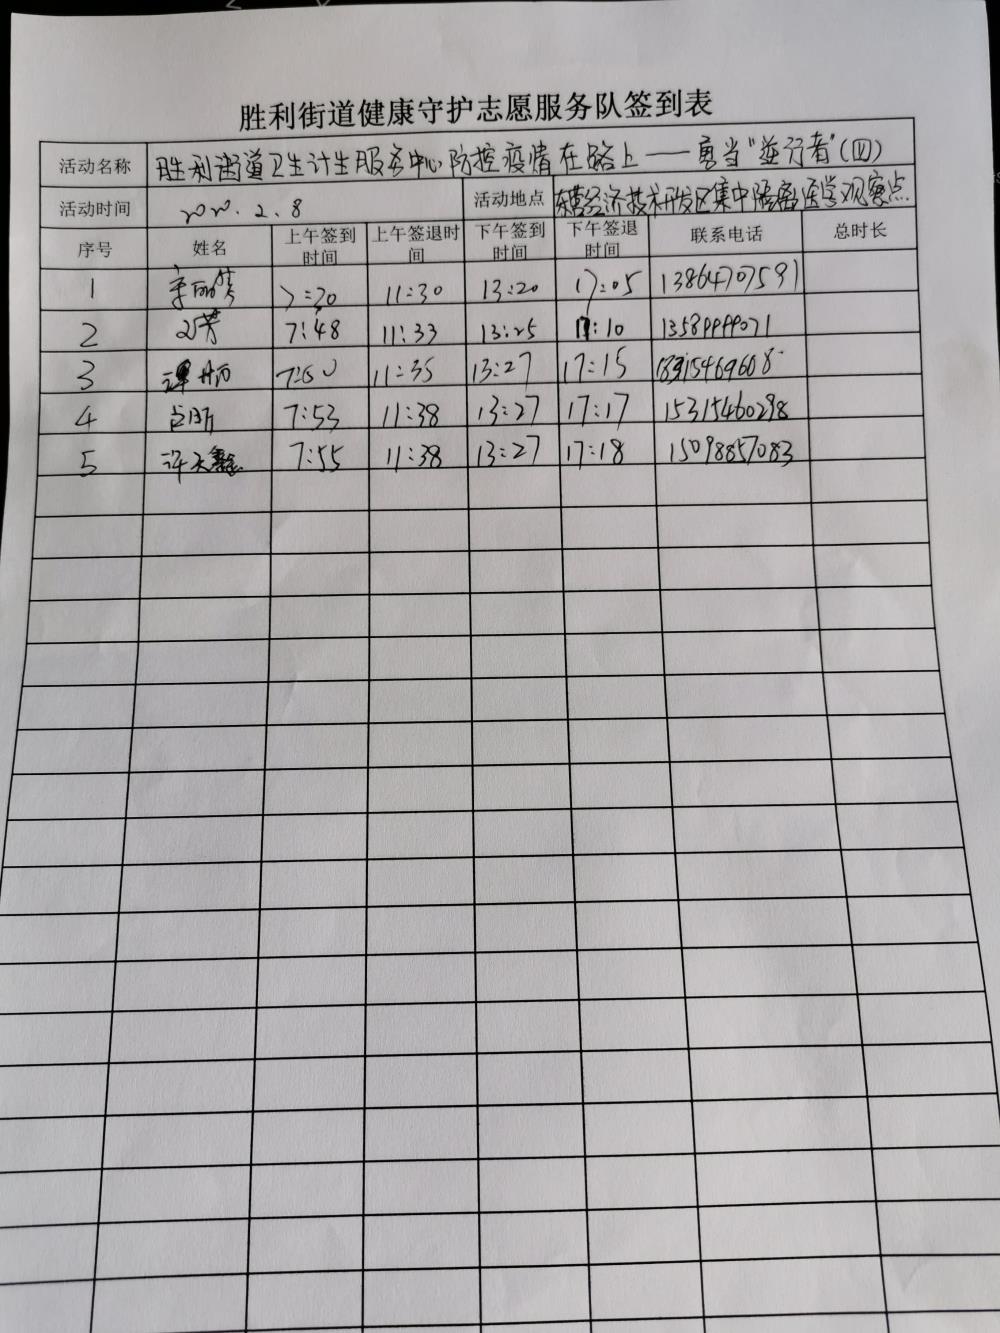 胜利街道健康守护志愿服务队签到表
活动名称 胜利街道卫生计生服务中心防控疫情在路上——勇当"逆行者"(四)
活动时间 2020.2.8 活动地点 东营经济技术开发区集中隔离医学观察点
序号 姓名 上午签到时间 上午签退时间 下午签到时间 下午签退时间 联系电话 总时长
1 7:30 11:30 13:20 17:05 13864707591
2 7:48 11:33 13:25 17:10
3 11:35 13:27 17:15
4 7:53 11:38 13:27 17:17 15315460298
5 7:55 11:38 13:27 17:18 15098857083